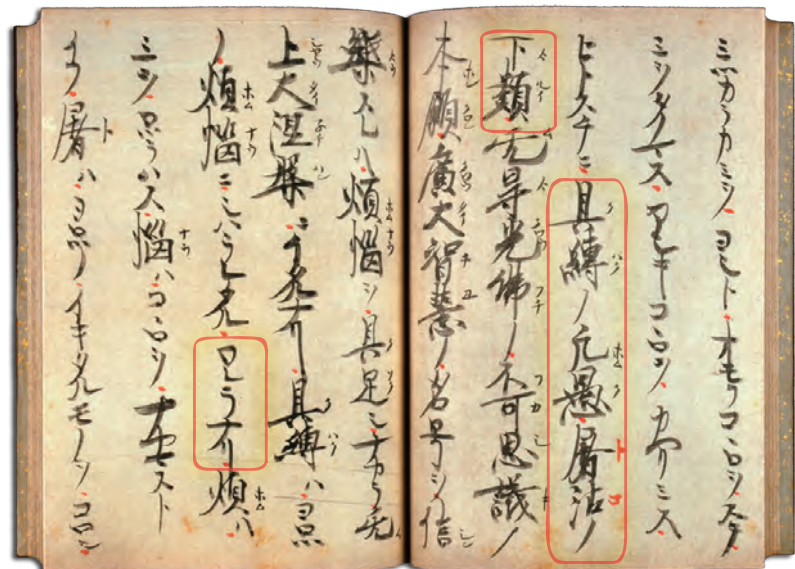 ミツカラカミヲヨシトオモフコヽロヲステ
ミヲタノマスアシキコヽロヲカヘリミス
ヒトスチニ具縛ノ凡愚屠沽ノ
下類无导光佛ノ不可思議ノ
本願廣大智慧ノ名号ヲ信
樂スレハ煩惱ヲ具足シナカラ无
上大涅槃ニイタルナリ具縛ハヨロツ
ノ煩惱ニシハラレタルワレラナリ煩ハ
ミヲワツラハス惱ハコヽロヲナヤマスト
イフ屠ハヨロツノイキタルモノヲコロシ